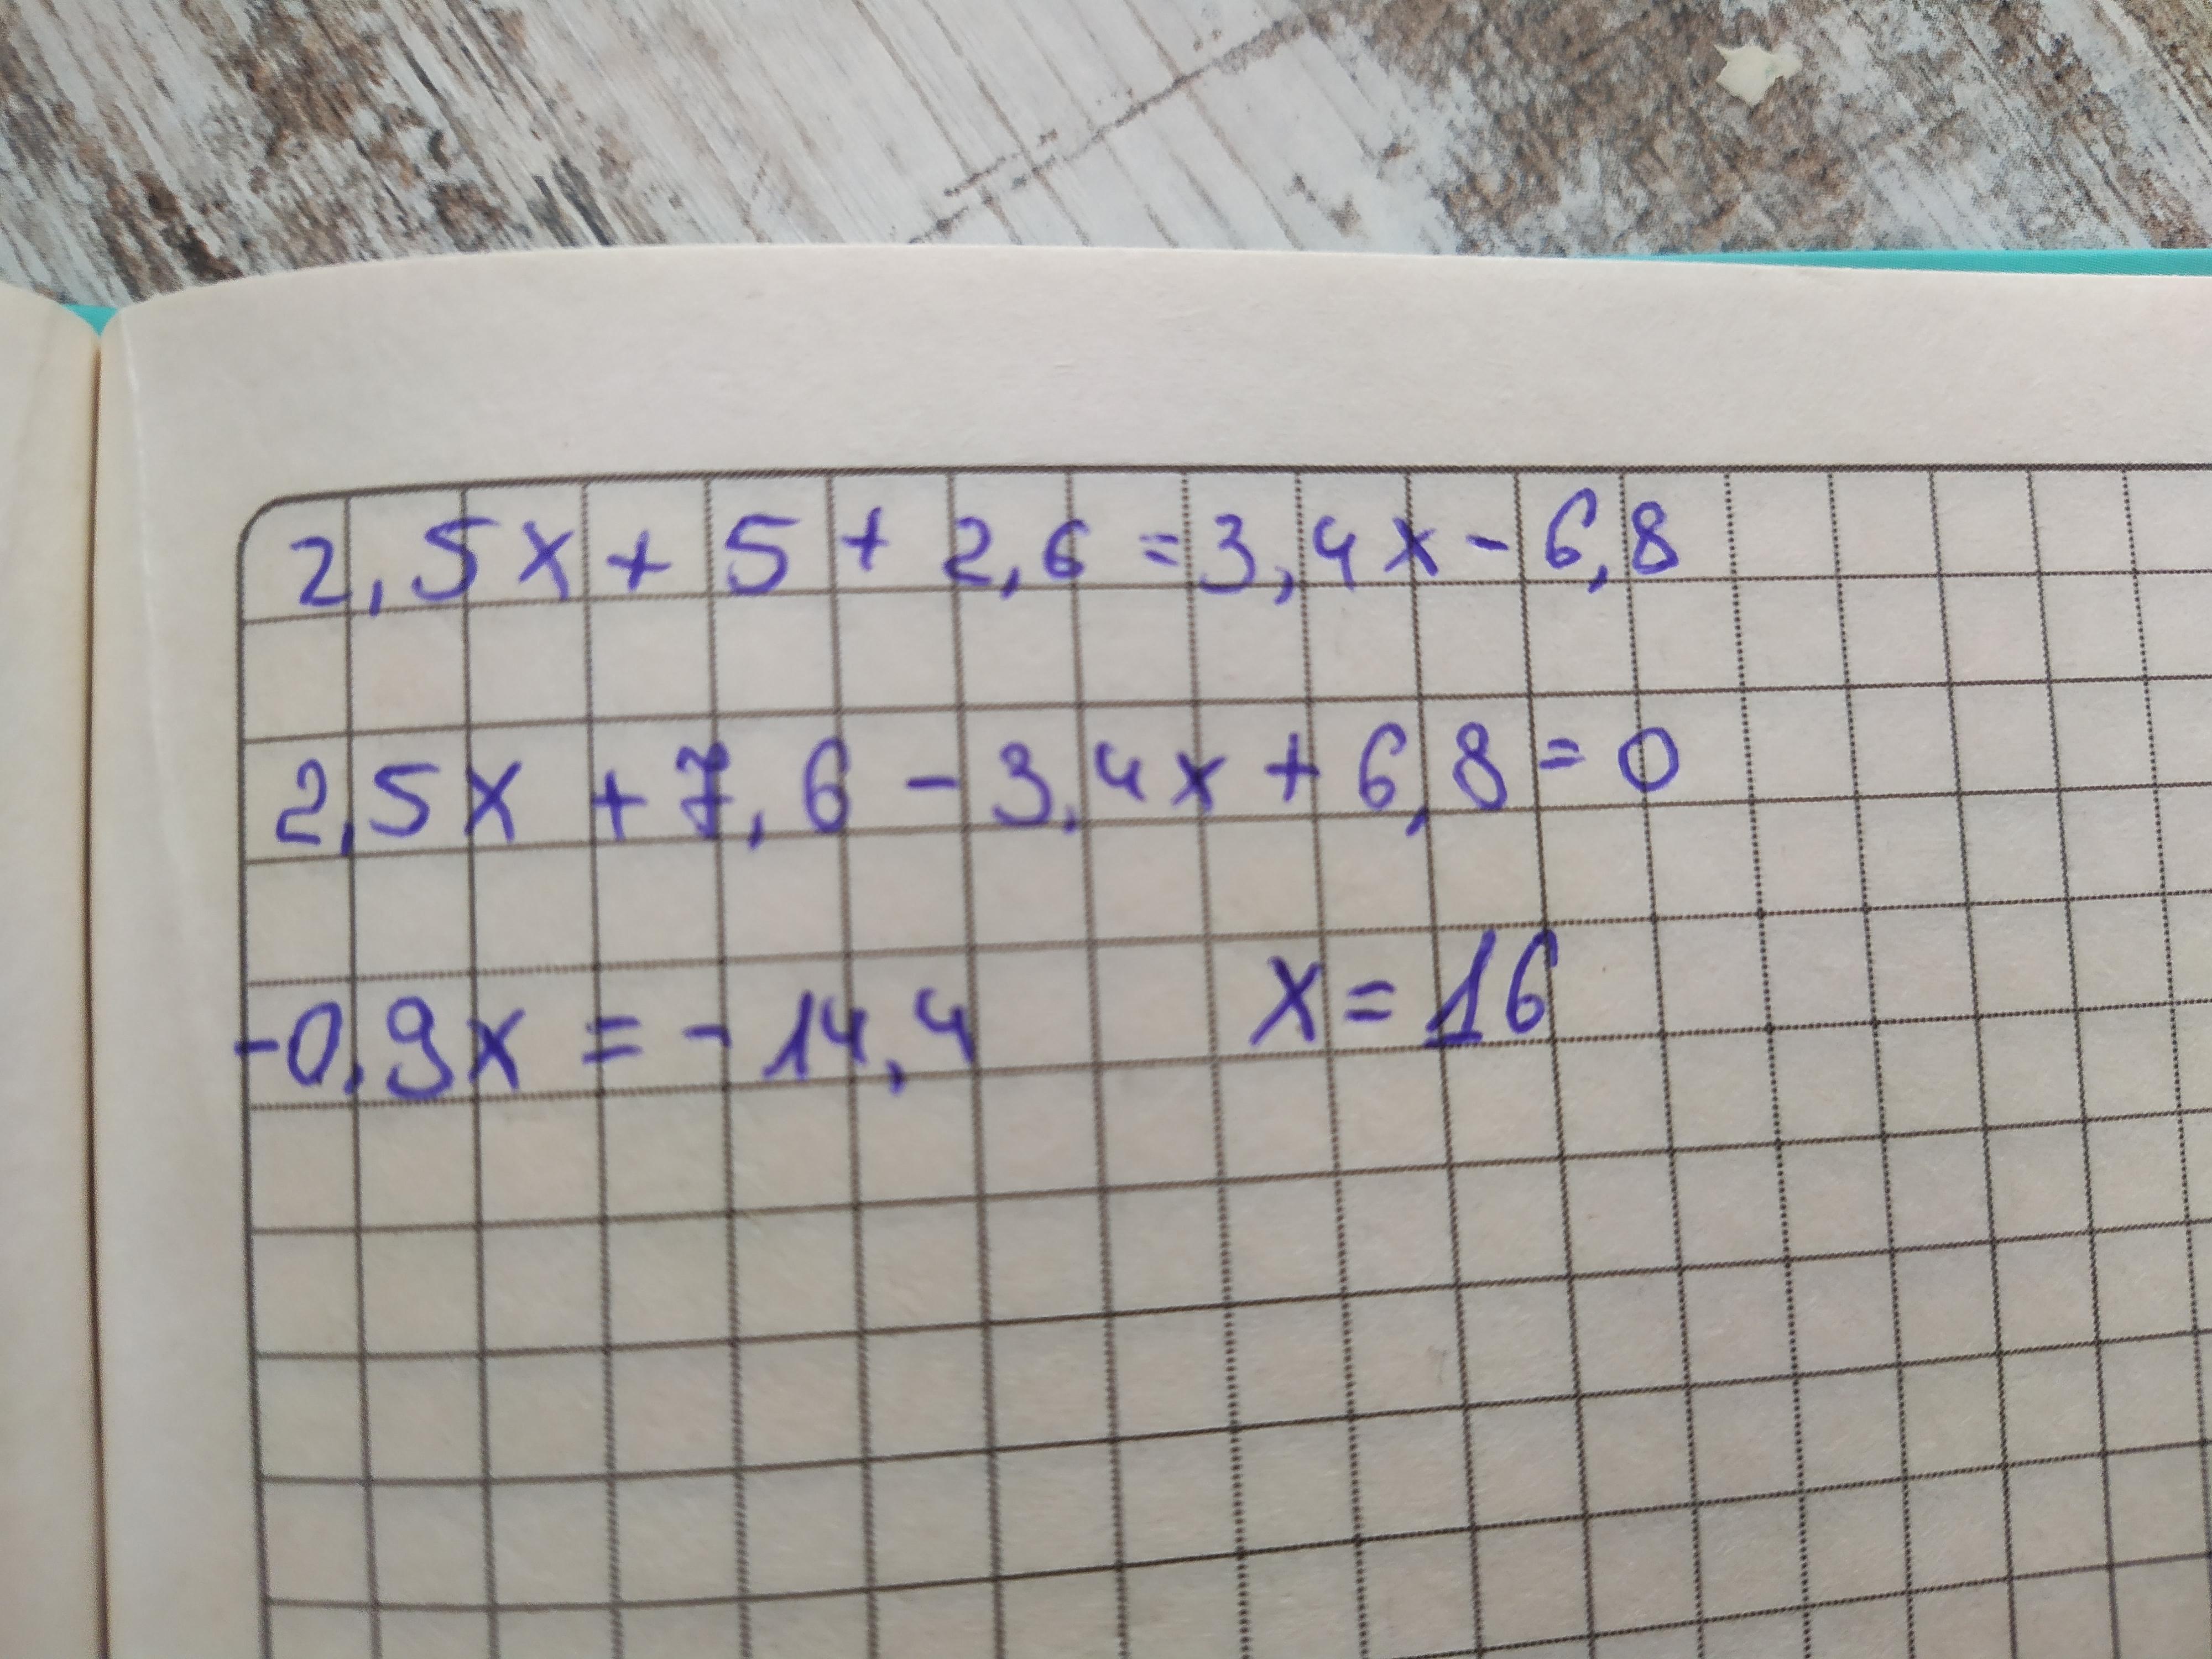 2,5x + 5 + 2,6 = 3,4x - 6,8
2,5x + 7,6 - 3,4x + 6,8 = 0
-0,9x = - 14,4 x = 16